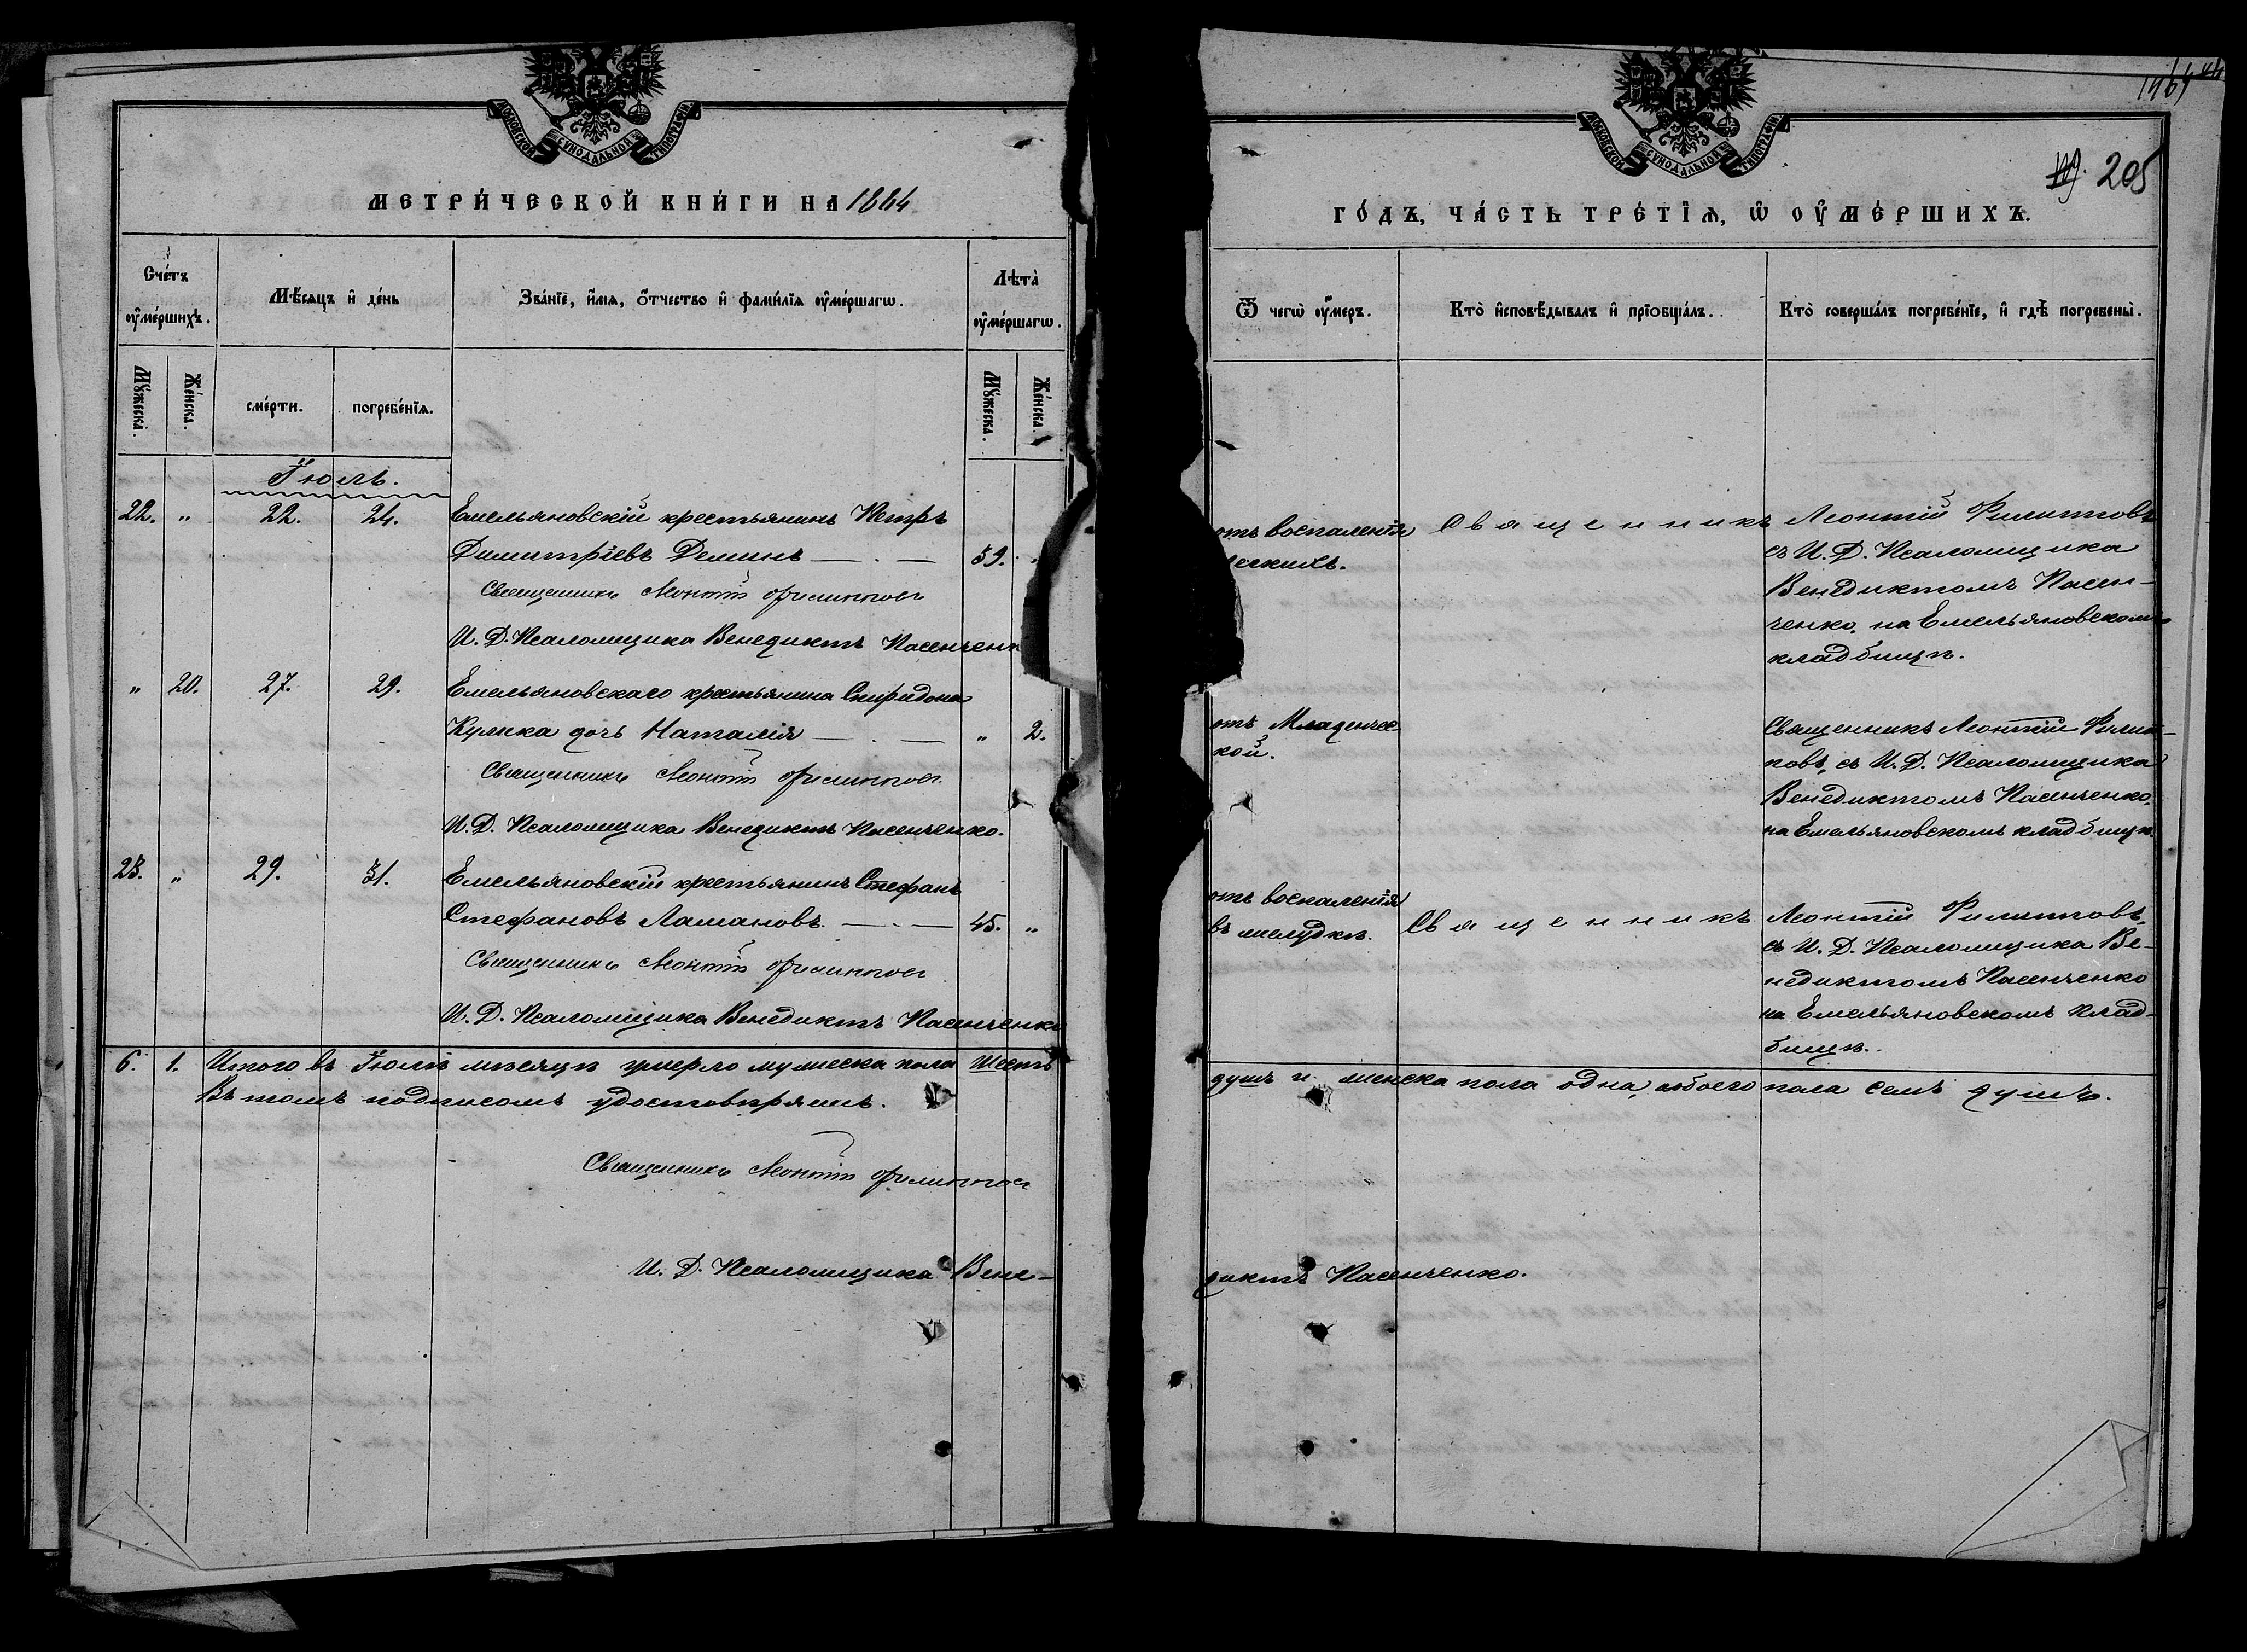 МОСКОВСКОЙ СѴНОДАЛЬНОЙ ТИПОГРАФІИ
МЕТРИ́ЧЕСКОЙ КНИ́ГИ НА 1884
Счéтъ ᲂу҆мéршихъ.
Мѣ́сяцъ и҆ дéнь
Звáнїе, и҆́мя, ѻ҆́тчество и҆ фами́лїя ᲂу҆мéршагѡ.
Лѣтà ᲂу҆мéршагѡ.
Мꙋ́жеска.
Жéнска.
смéрти.
погребéнїѧ.
Мꙋ́жеска.
Жéнска.
Іюль.
22. " 22. 24. Емельяновскій крестьянинъ Петръ
Димитріевъ Деминъ — . — 59. "
Священникъ Леонтій Филипповъ
И. Д. Псаломщика Венедиктъ Пасенчен
" 20. 27. 29. Емельяновскаго крестьянина Спиридона
Кулика дочь Наталія — . — " 2.
Священникъ Леонтій Филипповъ
И. Д. Псаломщика Венедиктъ Пасенченко.
23. " 29. 31. Емельяновскій крестьянинъ Стефанъ
Стефановъ Ламановъ. — . — 45. "
Священникъ Леонтій Филипповъ
И. Д. Псаломщика Венедиктъ Пасенченко
6. 1. Итого въ Іюлѣ мѣсяцѣ умерло мужеска пола шесть
Въ томъ подписомъ удостовѣряемъ.
Священникъ Леонтій Филипповъ
И. Д. Псаломщика Вене-
МОСКОВСКОЙ СѴНОДАЛЬНОЙ ТИПОГРАФІИ
205
ГÓДЪ, ЧÁСТЬ ТРÉТІѦ, Ѡ҆ ОУ҆МÉРШИХЪ.
Ѿ чегѡ̀ ᲂу҆́меръ.
Ктò и҆сповѣ́дывалъ и҆ прїобщáлъ.
Ктò совершáлъ погребéнїе, и҆ гдѣ̀ погребены̀.
отъ воспаленія Священникъ Леонтій Филипповъ
легкихъ. съ И. Д. Псаломщика
Венедиктомъ Пасен-
ченко, на Емельяновскомъ
кладбищѣ.
отъ Младенчес Священникъ Леонтій Филип-
кой. повъ, съ И. Д. Псаломщика
Венедиктомъ Пасенченко,
на Емельяновскомъ кладбищѣ.
отъ воспаленія
въ желудкѣ. Священникъ Леонтій Филипповъ,
съ И. Д. Псаломщика Ве-
недиктомъ Пасенченко
на Емельяновскомъ клад-
бищѣ.
душъ и женска пола одна, обоего пола семь душъ.
диктъ Пасенченко.